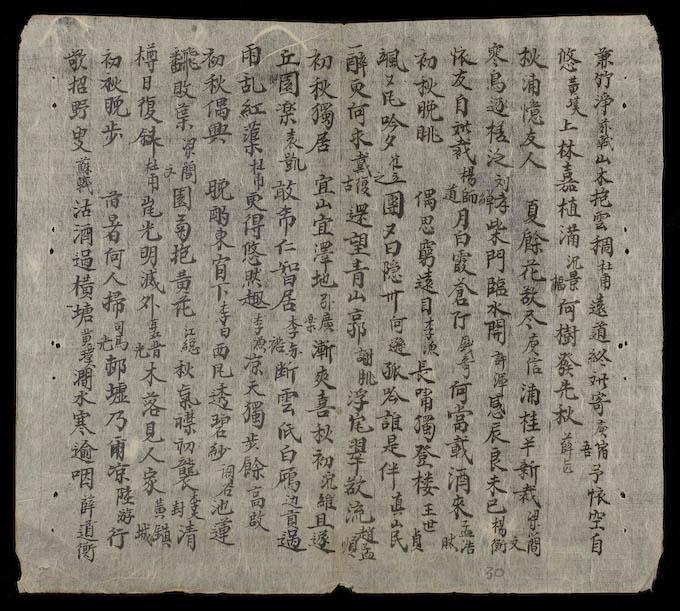 兼竹淨 蘇軾 山木抱雲稠 杜甫 遠道終難寄 庾信吾 予懷空自
悠 上林嘉植滿 沈景 何樹發先秋 薛
秋浦憶友人 夏餘花欲盡 庾信 浦桂半新栽 梁簡文
寒鳥逐槎泛 劉孝綽 柴門臨水開 許渾 感辰良未已 楊衡
懷友自難裁 楊師道 月白霞蒼 何當載酒來 孟浩然
初秋晚眺 偶思窮遠目 李漁 長嘯獨登楼 王世貞
颯又風吟夕 崔立之 團又日隱 何遜 孤吟誰是伴 真山民
一醉更何求 戴復古 還望青山郭 謝朓 浮嵐翠欲流 趙孟頫
初秋獨居 宜山宜澤地 孫廣 漸爽喜秋初 且遂
丘園樂 袁凱 敢希仁智居 斷雲低白鴈 邊貢 過
雨乱紅蕖 杜甫 更得悠然趣 李漁 凉天獨步餘 高啟
初秋偶興 晚酌東窗下 李白 西風透碧紗 池蓮
翻敗葉 梁簡文 園菊抱黃花 江總 秋氣襟初襲 清
樽日復斜 杜甫 嵐光明滅外 木落見人家 黃鎮城
初秋晚步 何人掃 司馬光 墟乃爾凉 陸游 行
招野叟 蘇軾 沽酒過橫塘 黃璞 澗水寒逾咽 薛道衡
30